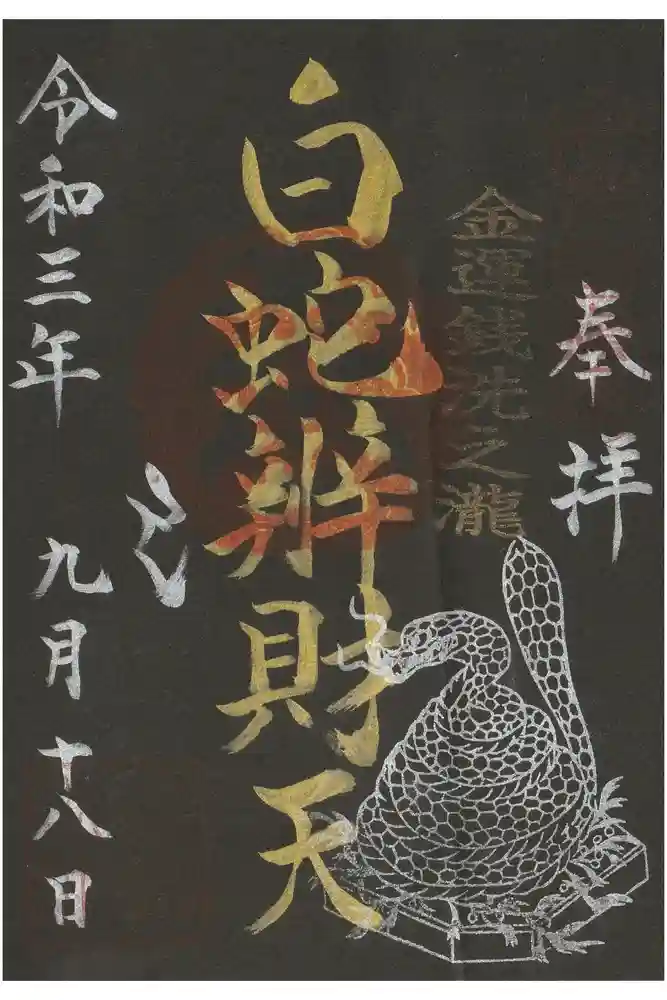 奉拝
金運銭洗之瀧
白蛇辨財天
令和三年 九月 十八日